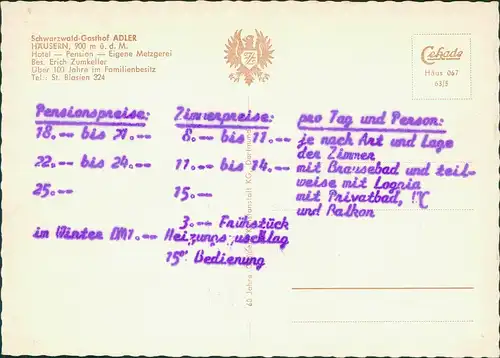 Schwarzwald-Gasthof ADLER
HÄUSERN, 900 m ü. d. M.
Hotel — Pension — Eigene Metzgerei
Bes. Erich Zumkeller
Über 100 Jahre im Familienbesitz
Tel.: St. Blasien 324
Cekade
Häus 067
63/5
Pensionspreise: Zimmerpreise: pro Tag und Person:
18.-- bis 21.-- 8.-- bis 11.-- je nach Art und Lage
der Zimmer
22.-- bis 24.-- 11.-- bis 14.-- mit Brausebad und teil-
weise mit Loggia
25.-- 15.-- mit Privatbad, WC
und Balkon
3.-- Frühstück
im Winter DM 1.-- Heizungszuschlag
15% Bedienung
40 Jahre